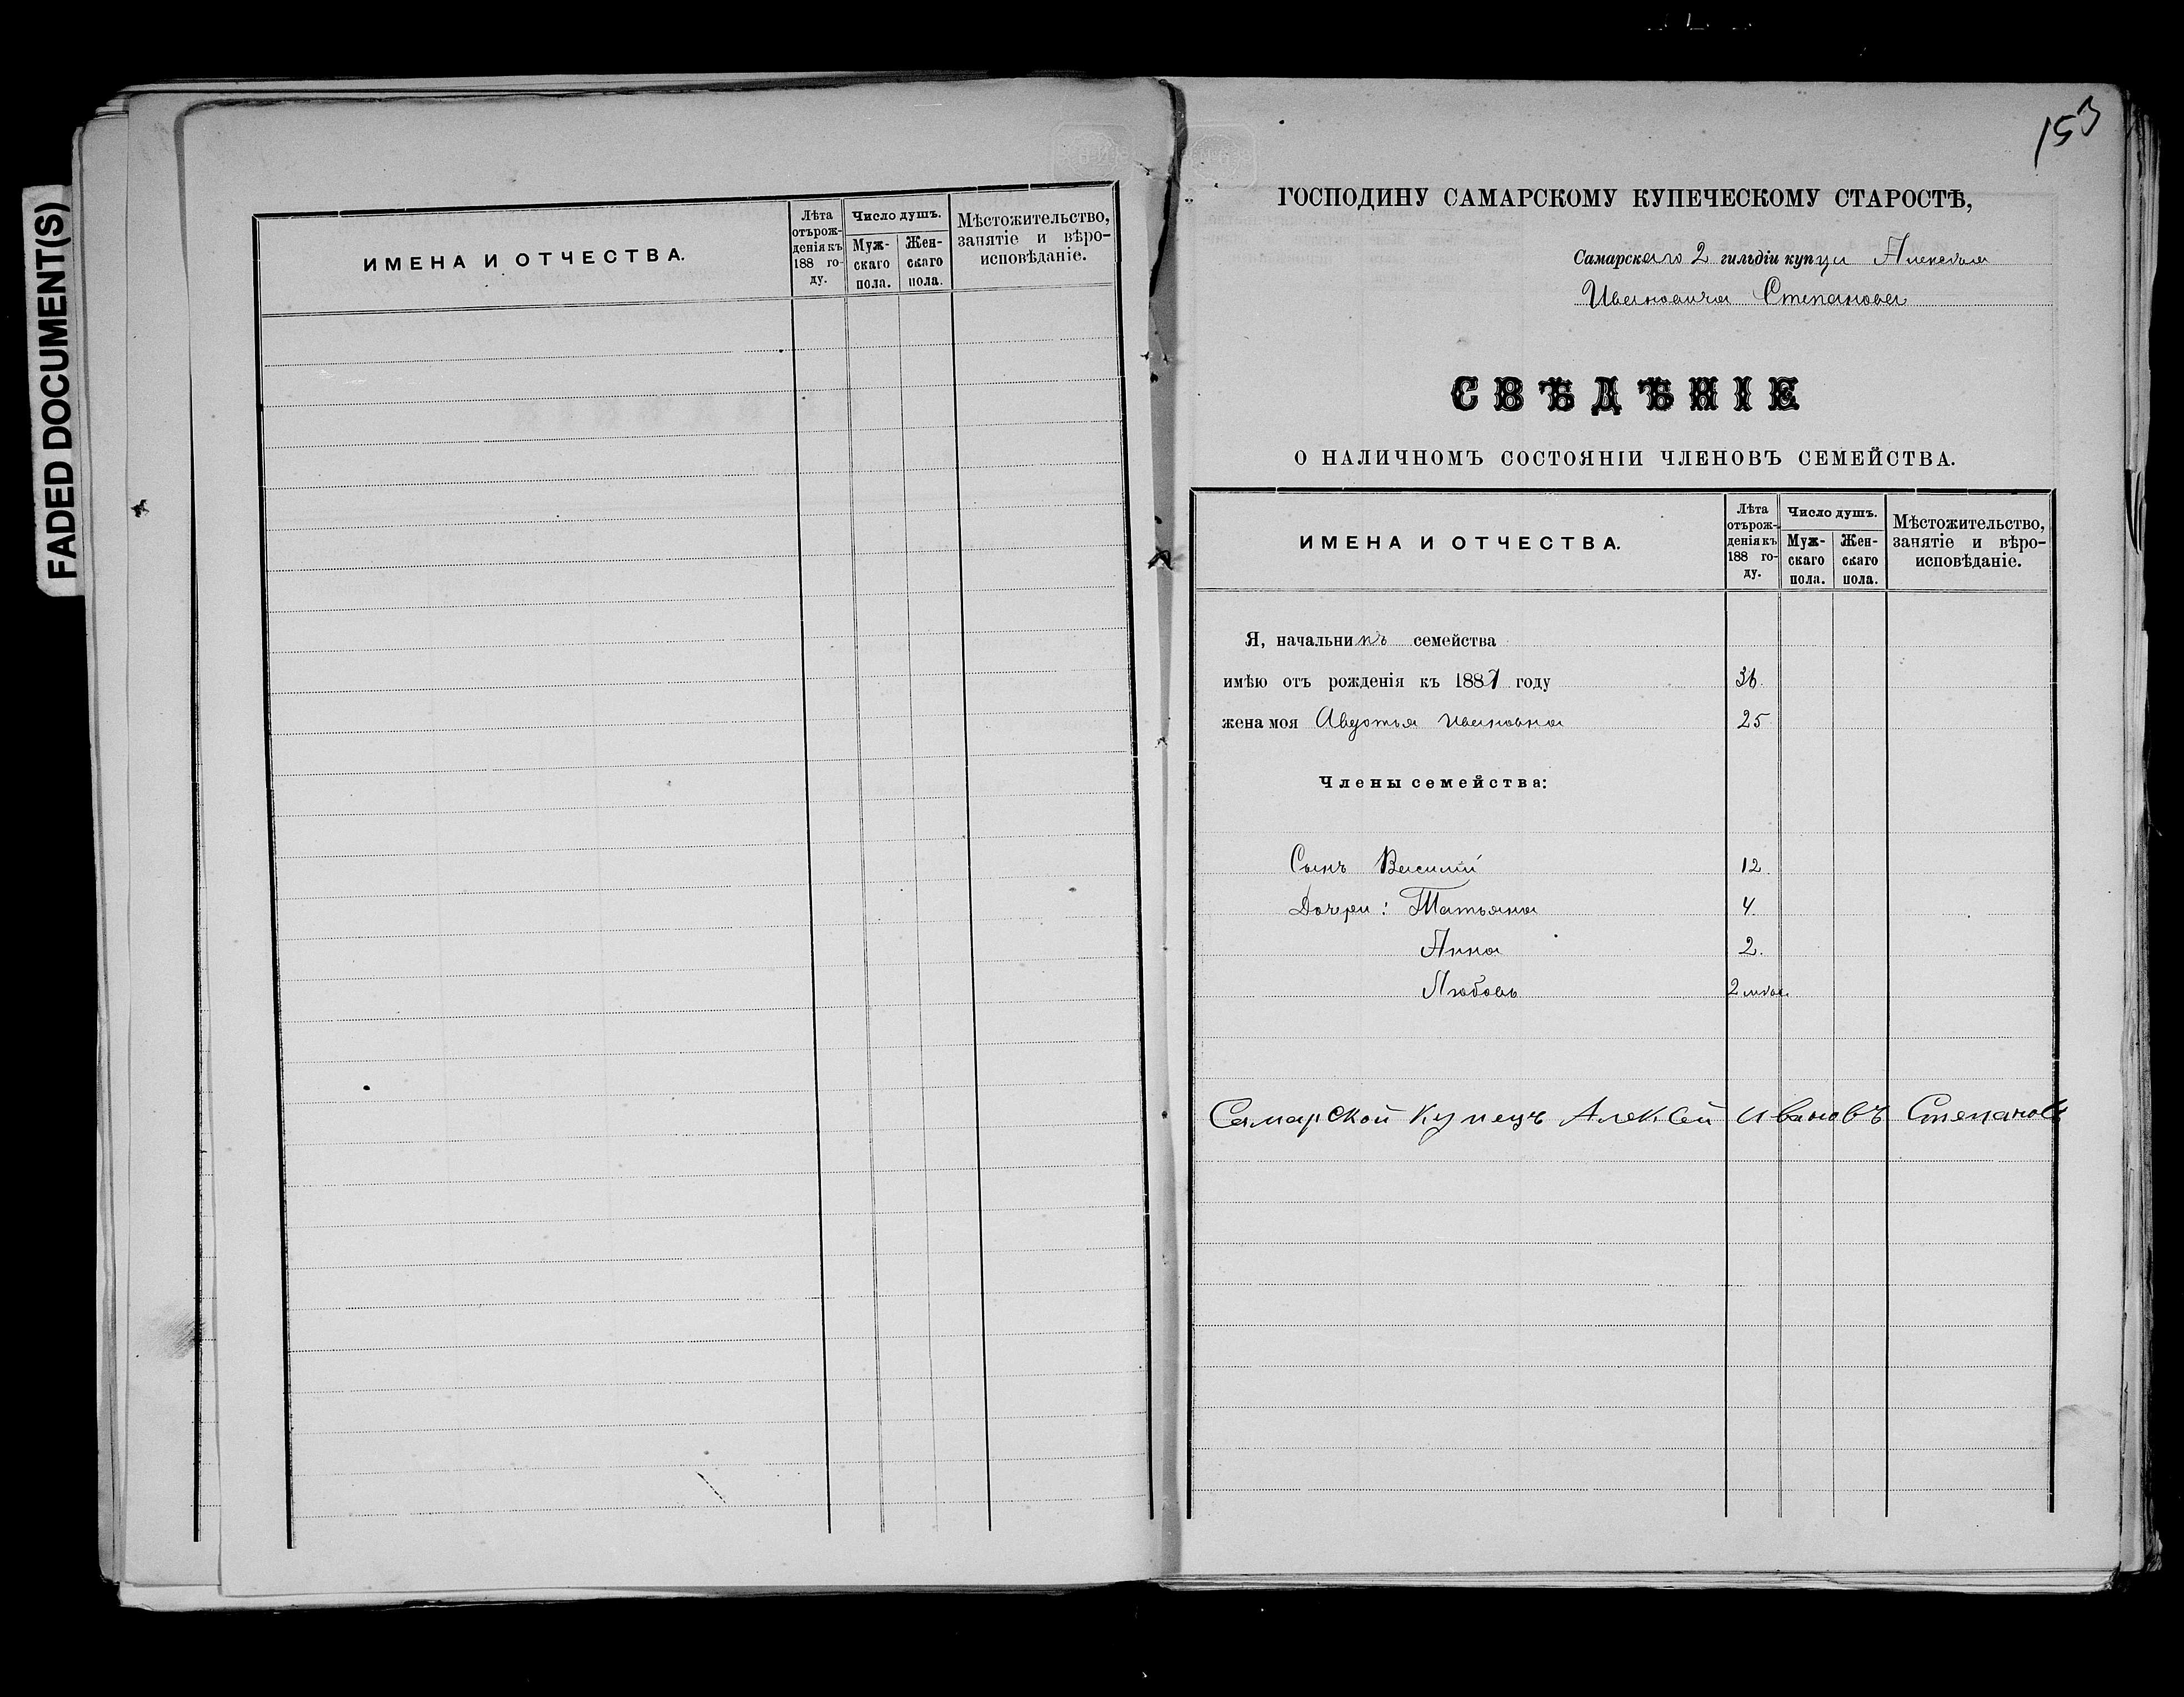 FADED DOCUMENT(S)
ИМЕНА И ОТЧЕСТВА.
Лѣта отърожденія къ 188 году.
Число душъ.
Мужскаго пола.
Женскаго пола.
Мѣстожительство, занятіе и вѣроисповѣданіе.
153
ГОСПОДИНУ САМАРСКОМУ КУПЕЧЕСКОМУ СТАРОСТѢ,
Самарскаго 2 гильдіи купца Алексѣя
Ивановича Степанова
СВѢДѢНІЕ
О НАЛИЧНОМЪ СОСТОЯНІИ ЧЛЕНОВЪ СЕМЕЙСТВА.
ИМЕНА И ОТЧЕСТВА.
Лѣта отърожденія къ 188 году.
Число душъ.
Мужскаго пола.
Женскаго пола.
Мѣстожительство, занятіе и вѣроисповѣданіе.
Я, начальникъ семейства
имѣю отъ рожденія къ 1887 году 36.
жена моя Авдотья Ивановна 25
Члены семейства:
Сынъ Василій 12.
Дочери: Татьяна 4.
Анна 2.
Любовь 2
Самарской купецъ Алексей Ивановъ Степановъ